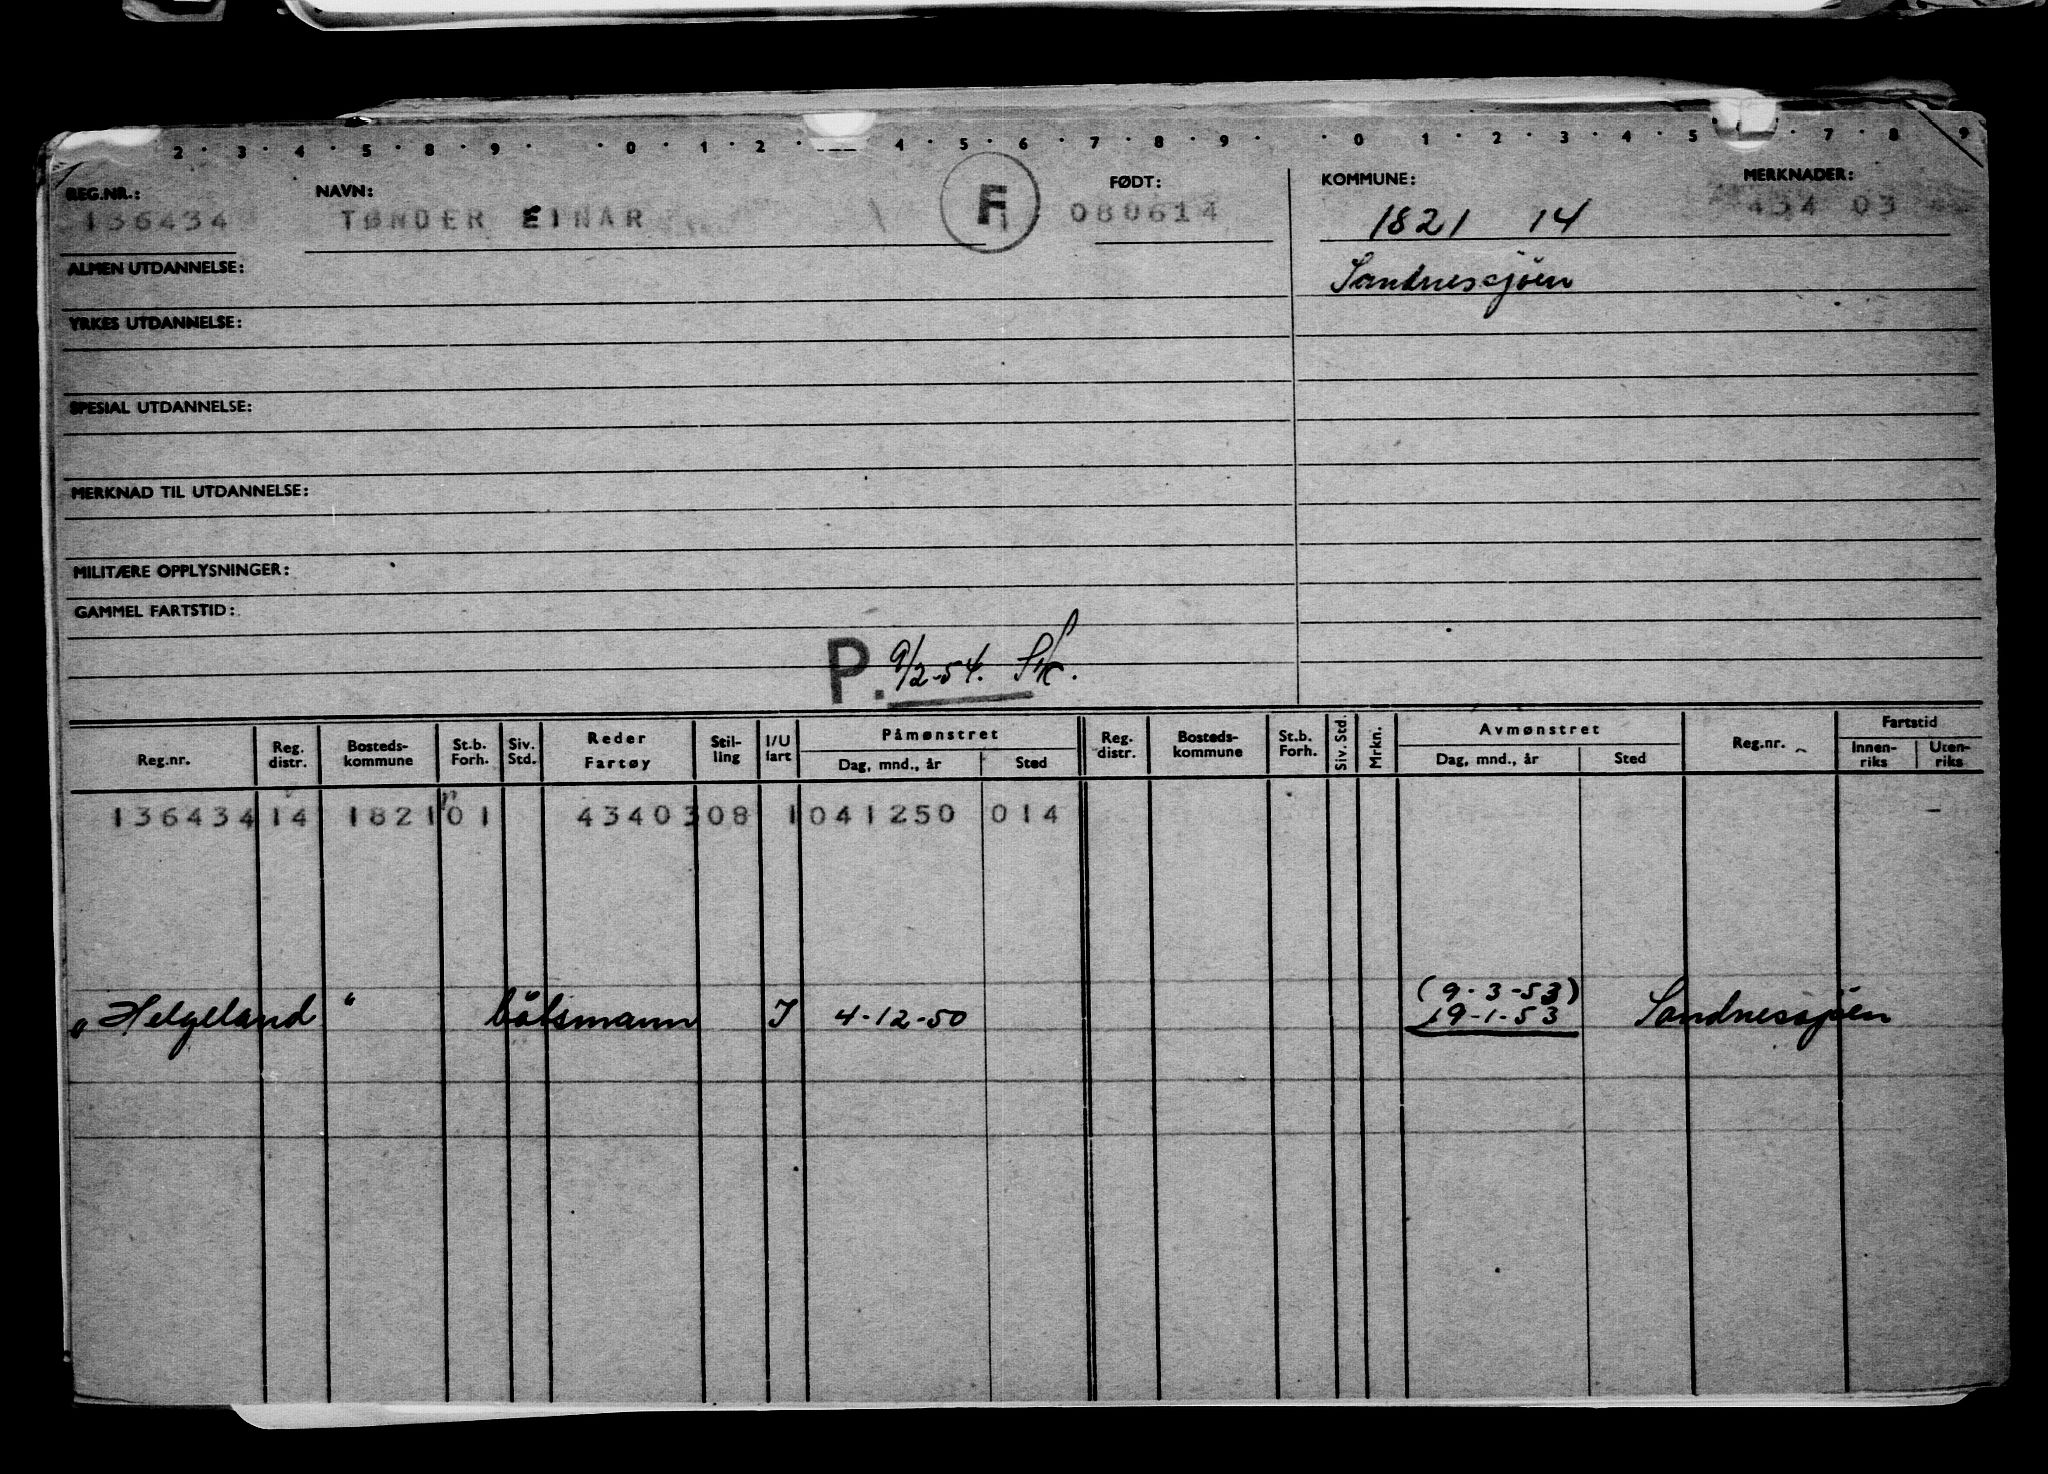 2 · 3 · 4 · 5 · 8 · 9 · · 0 · 1 · 2 · 4 · 5 · 6 · 7 · 8 · 9 · · 0 · 1 · 2 · 3 · 4 · 5 · 7 · 8 · 9
REG.NR.: NAVN: F FØDT: KOMMUNE: MERKNADER:
136434 TØNDER EINAR 080614 1821 14 434 03
ALMEN UTDANNELSE: Sandnessjöen
YRKES UTDANNELSE:
SPESIAL UTDANNELSE:
MERKNAD TIL UTDANNELSE:
MILITÆRE OPPLYSNINGER:
GAMMEL FARTSTID:
P. 9/2-54.
Reg.nr. Reg. distr. Bosteds-kommune St.b. Forh. Siv. Std. Reder Fartøy Stil-ling I/U fart Påmønstret Dag, mnd., år Sted Reg. distr. Bosteds-kommune St.b. Forh. Siv. Std. Mrkn. Avmønstret Dag, mnd., år Sted Reg.nr. Fartstid Innen-riks Uten-riks
136434 14 1821 01 43403 08 1 041250 014
(9-3-53)
"Helgeland" båtsmann I 4-12-50 19-1-53 Sandnessjöen